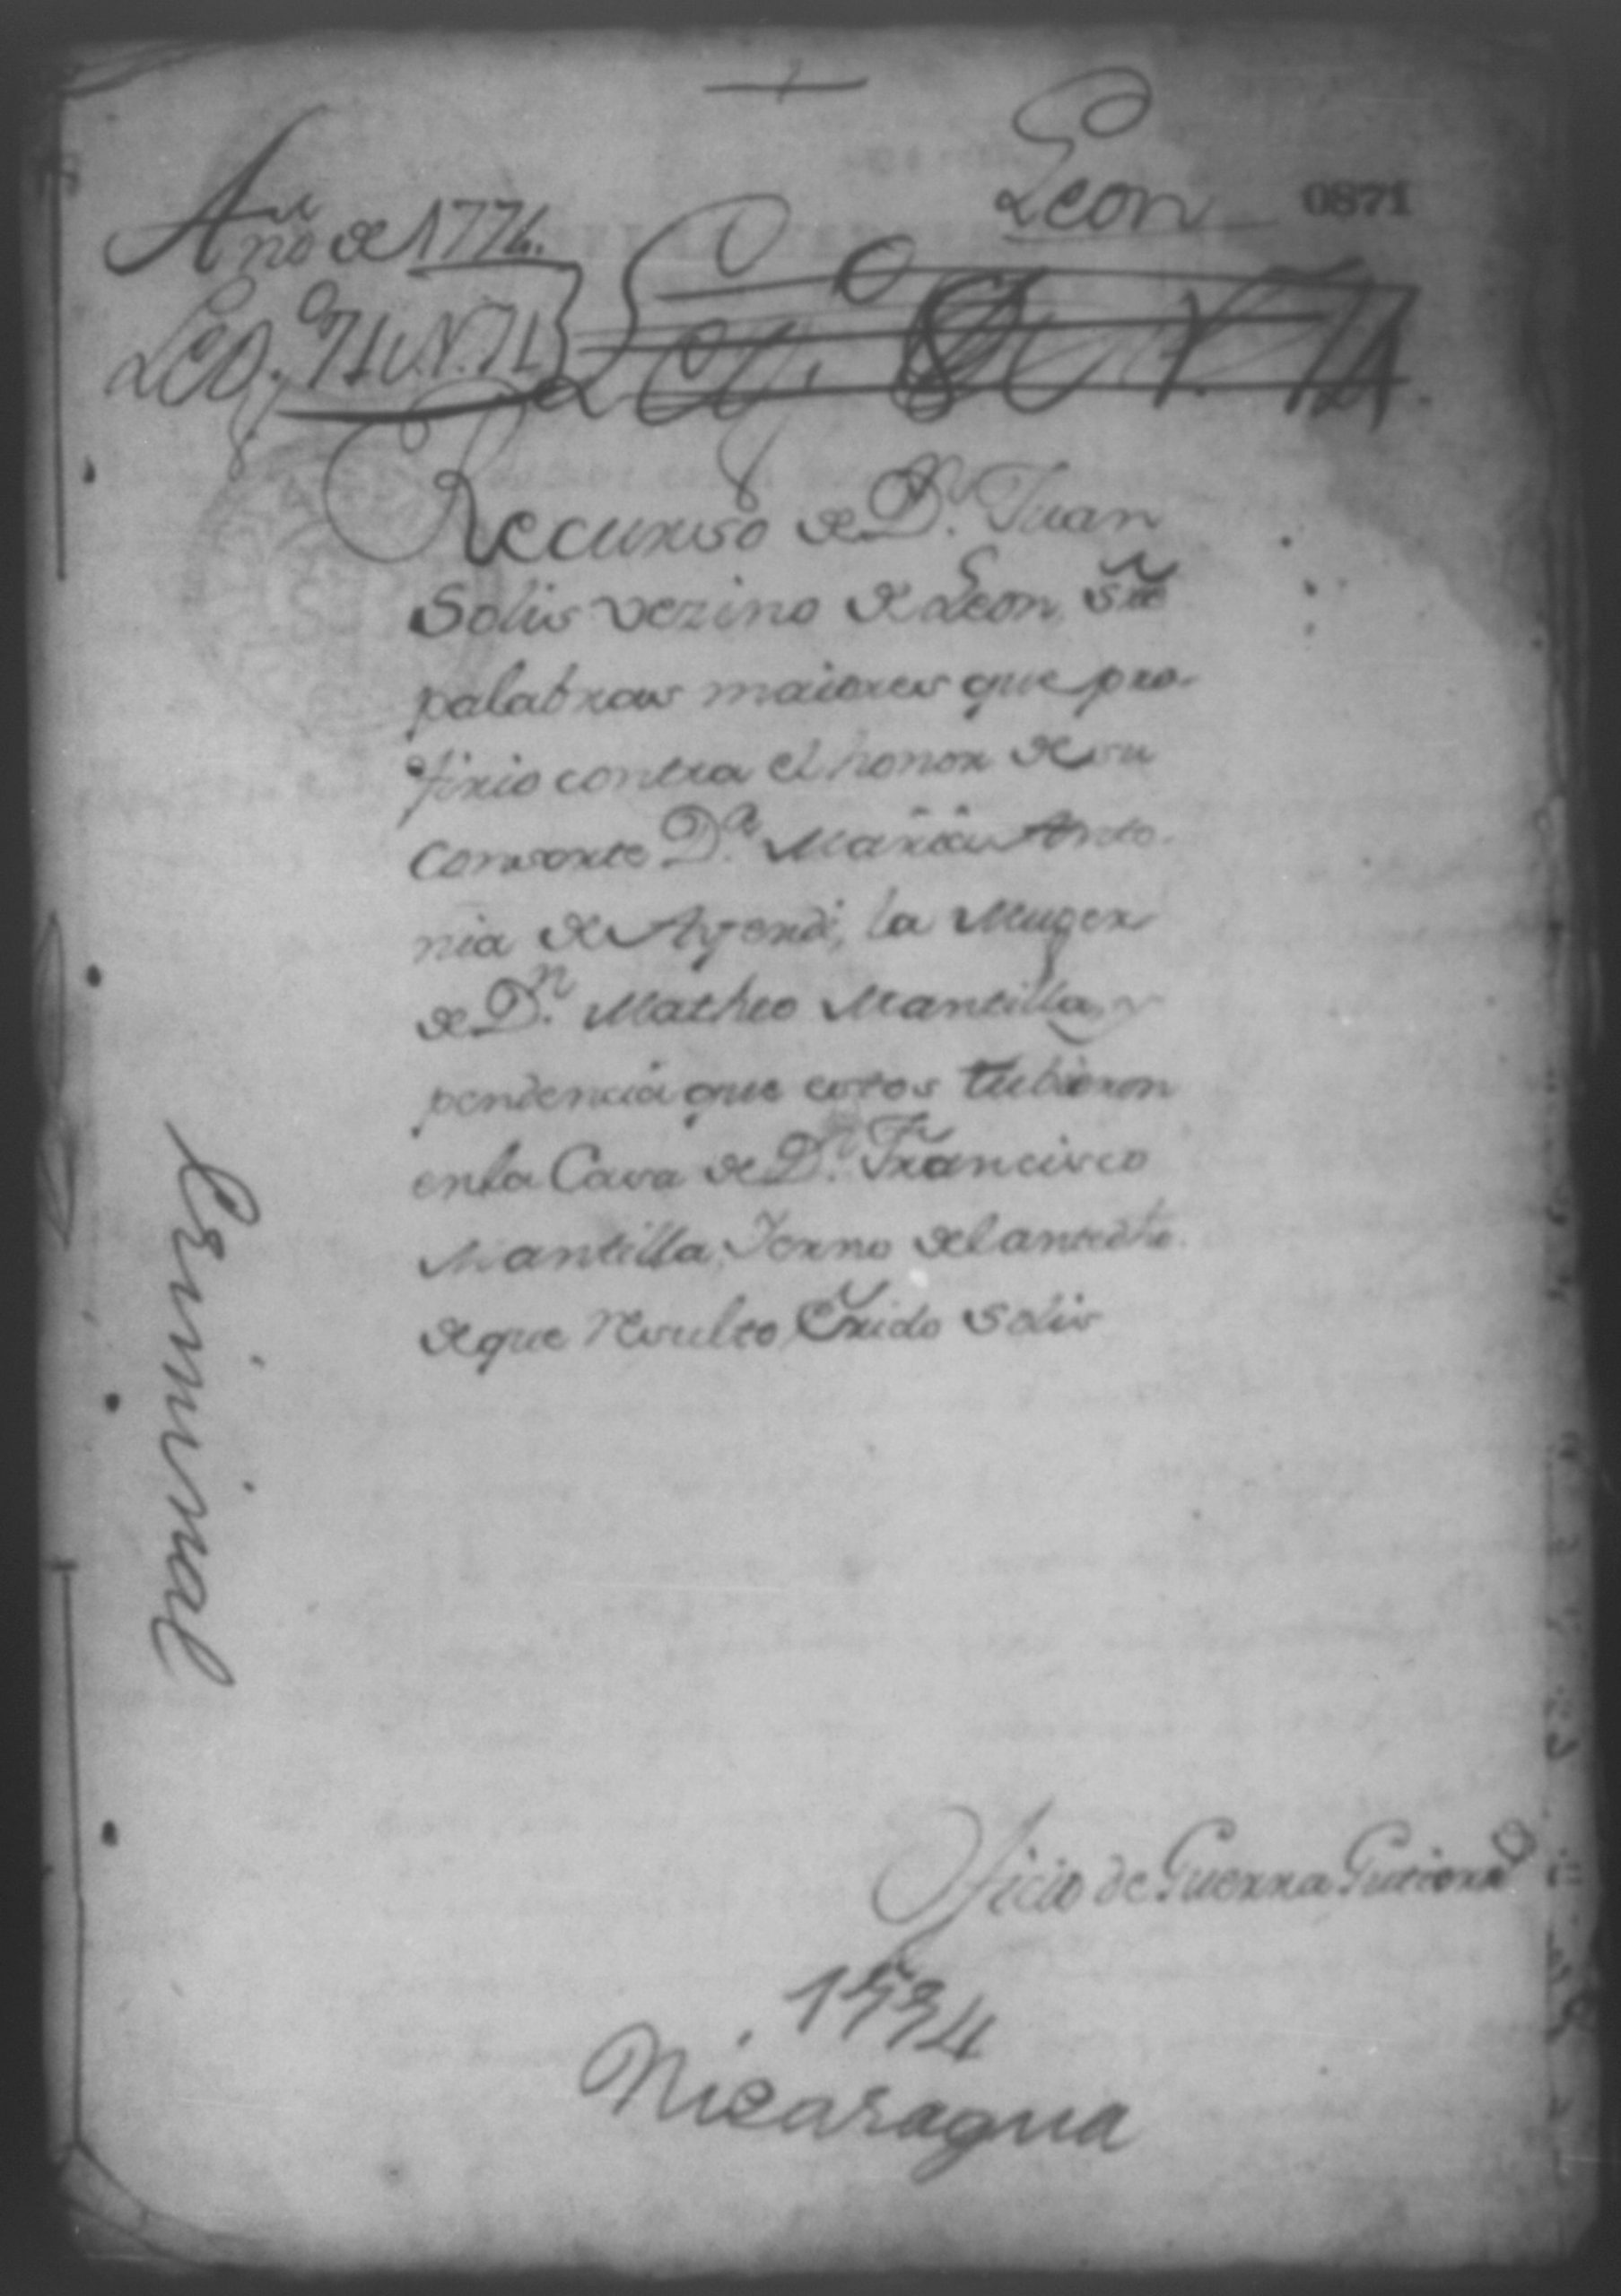 Leon
0871
Año de 1774.
Leg.
Leg.
Recurso de Dn. Juan
Solis vezino de Leon, sre
palabras maiores que pro-
firio contra el honor de su
Consorte Da. Maria Anto-
nia de Ayendi, la Muger
de Dn. Matheo Mantilla, y
pendencia que estos tubieron
en la Casa de Dn. Francisco
Mantilla, Yerno del antedho.
de que Resulto herido Solis
Criminal
Oficio de Guerra
Nicaragua